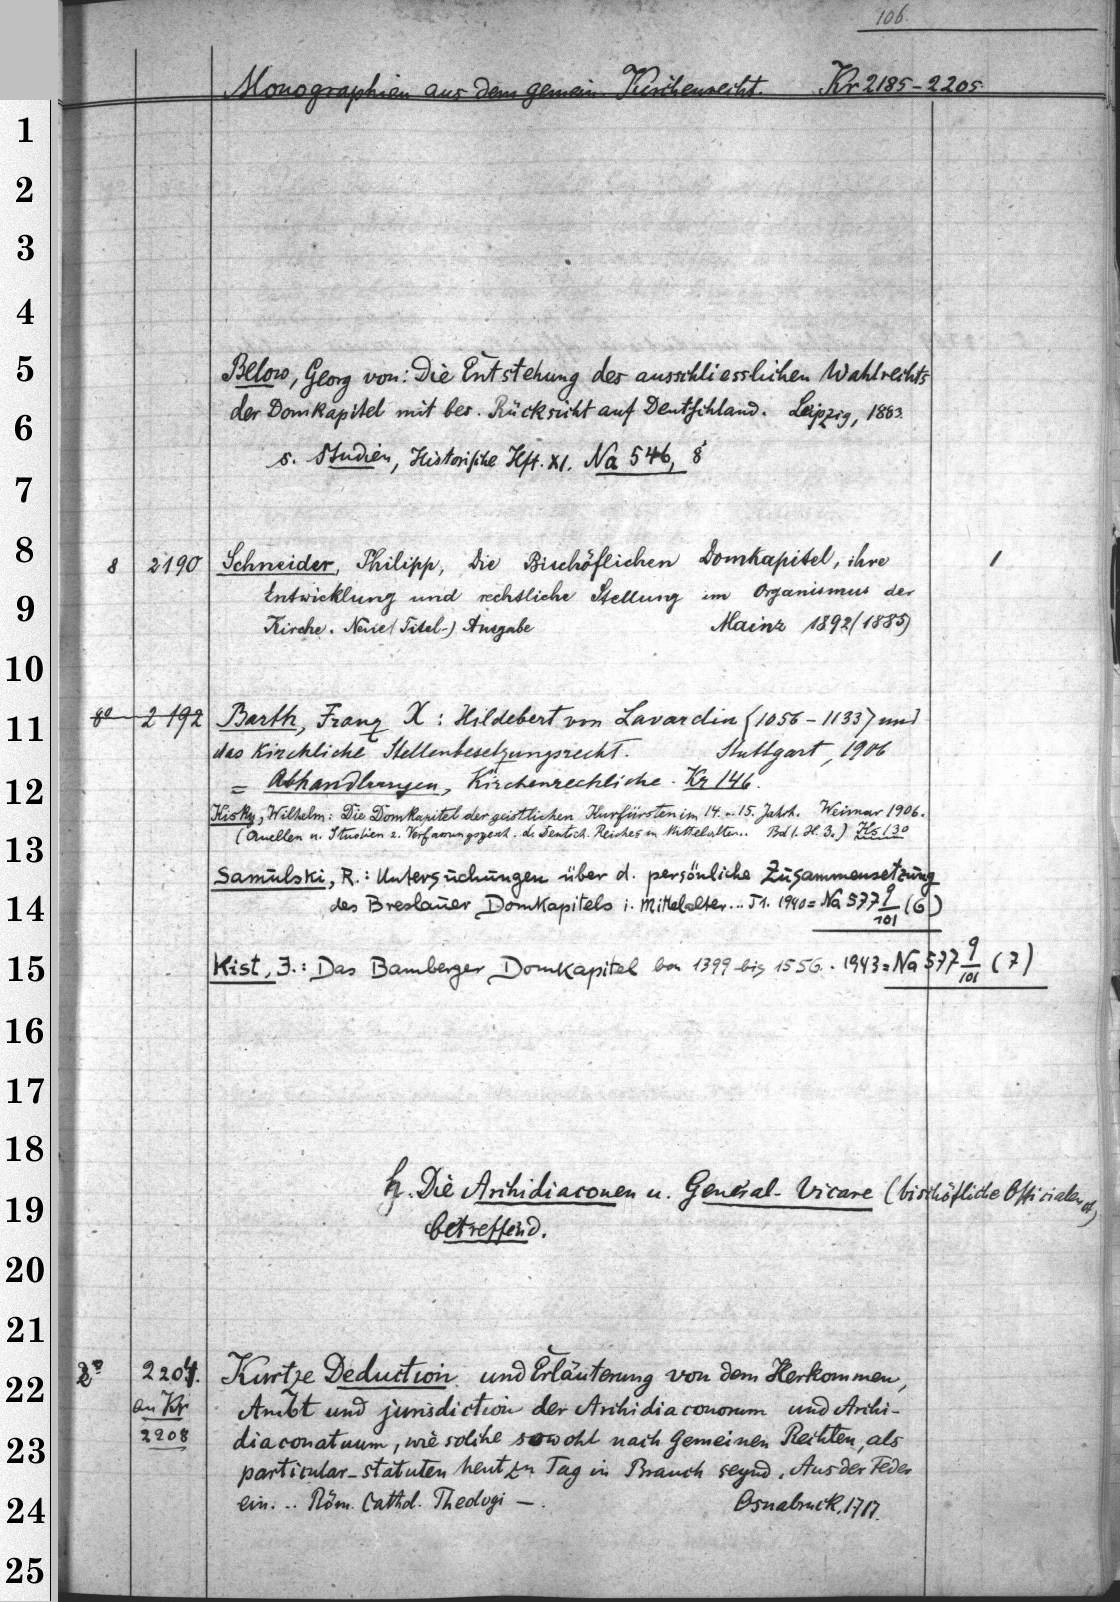 106.
Monographien aus dem gemein. Kirchenrecht. Kr 2185-2205
1
2
3
4
5
Below, Georg von: Die Entstehung des ausschliesslichen Wahlrechts
der Domkapitel mit bes. Rücksicht auf Deutschland. Leipzig, 1883.
6
s. Studien, Historische Hft. XI. Na 546, 8°
7
8
8 2190 Schneider, Philipp, Die Bischöflichen Domkapitel, ihre 1
Entwicklung und rechtliche Stellung im Organismus der
9
Kirche. Neue (Titel-) Ausgabe Mainz 1892 (1885)
10
11
8° 2192 Barth, Franz X: Hildebert von Lavardin (1056-1133) und
das kirchliche Stellenbesetzungsrecht. Stuttgart, 1906
12
= Abhandlungen, Kirchenrechtliche. Kr 146.
Kisky, Wilhelm: Die Domkapitel der geistlichen Kurfürsten im 14. u. 15. Jahrh. Weimar 1906.
(Quellen u. Studien z. Verfassungsgesch. d. Deutsch. Reiches in Mittelalter.. Bd 1. H. 3.) Hs 130
13
Samulski, R.: Untersuchungen über d. persönliche Zusammensetzung
14
des Breslauer Domkapitels i. Mittelalter... T1. 1940 = Na 577 9/101 (6)
15
Kist, J.: Das Bamberger Domkapitel von 1399 bis 1556. 1943 = Na 577 9/101 (7)
16
17
18
h. Die Archidiaconen u. General-Vicare (bischöfliche Officialen etc)
19
betreffend.
20
21
22
2° 2204. Kurtze Deduction und Erläuterung von dem Herkommen,
an Kr Ambt und jurisdiction der Archidiaconorum und Archi-
2208 diaconatuum, wie solche sowohl nach Gemeinen Rechten, als
23
particular-statuten heut zu Tag in Brauch seynd. Aus der Feder
24
ein... Röm. Cathol. Theologi -. Osnabruck, 1717.
25